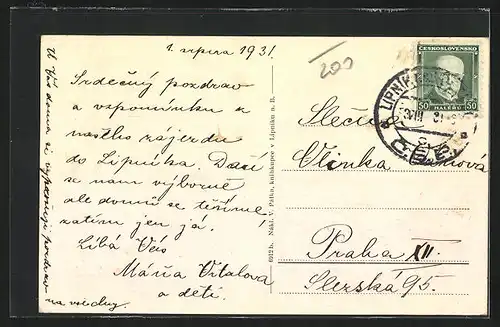 1. srpna 1931
200
Srdečný pozdrav
a vzpomínku z
našeho zájezdu
do Lipníka. Daří
se nám výborně
ale domů se těšíme
zatím jen já.
Líbá Vás
Máňa Vítalova
a děti.
pozdrav
na všechny
6912 b. Nákl. V. Pátka, knihkupce v Lipníku n. B.
ČESKOSLOVENSKO
50 HALÉŘŮ 50
LIPNÍK
Slečna
Olinka
Praha XII.
Slezská 95.